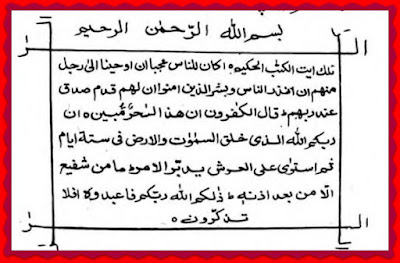 بسم الله الرحمٰن الرحيم
الٓرٰ
الٓرٰ
تلك ايت الكتب الحكيم ه اكان للناس عجبا ان اوحينا الى رجل
منهم ان انذر الناس وبشر الذين امنوا ان لهم قدم صدق
عند ربهم ط قال الكفرون ان هذا لسحر مبين ه ان
ربكم الله الذى خلق السمٰوٰت والارض فى ستة ايام
ثم استوٰى على العرش يدبر الامر ط ما من شفيع
الا من بعد اذنه ط ذلكم الله ربكم فاعبدوه افلا
تذكرون ه
الٓرٰ
الٓرٰ